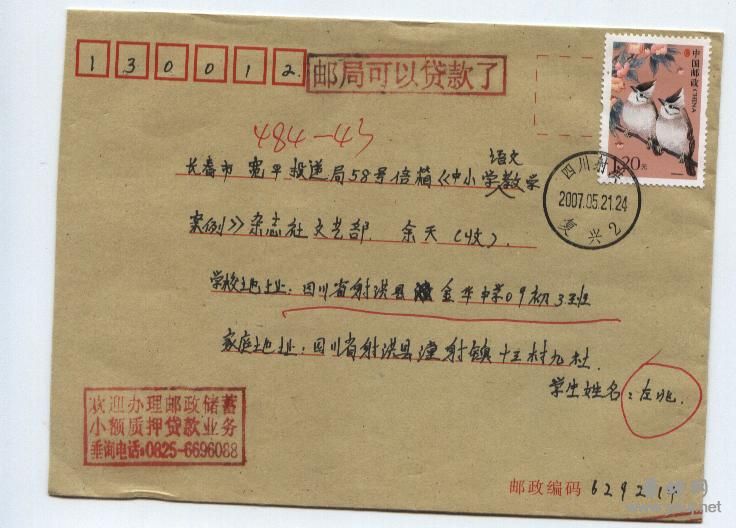 130012
邮局可以贷款了
中国邮政 CHINA
1.20元
484-43
语文
长春市 宽平投递局58号信箱《中小学教学
四川射
2007.05.21.24
复兴2
案例》杂志社文艺部. 余天(收).
学校地址:四川省射洪县 金华中学09初3班
家庭地址:四川省射洪县潼射镇十三村九社.
学生姓名:左兆.
欢迎办理邮政储蓄
小额质押贷款业务
垂询电话:0825-6696088
邮政编码 6292
.net